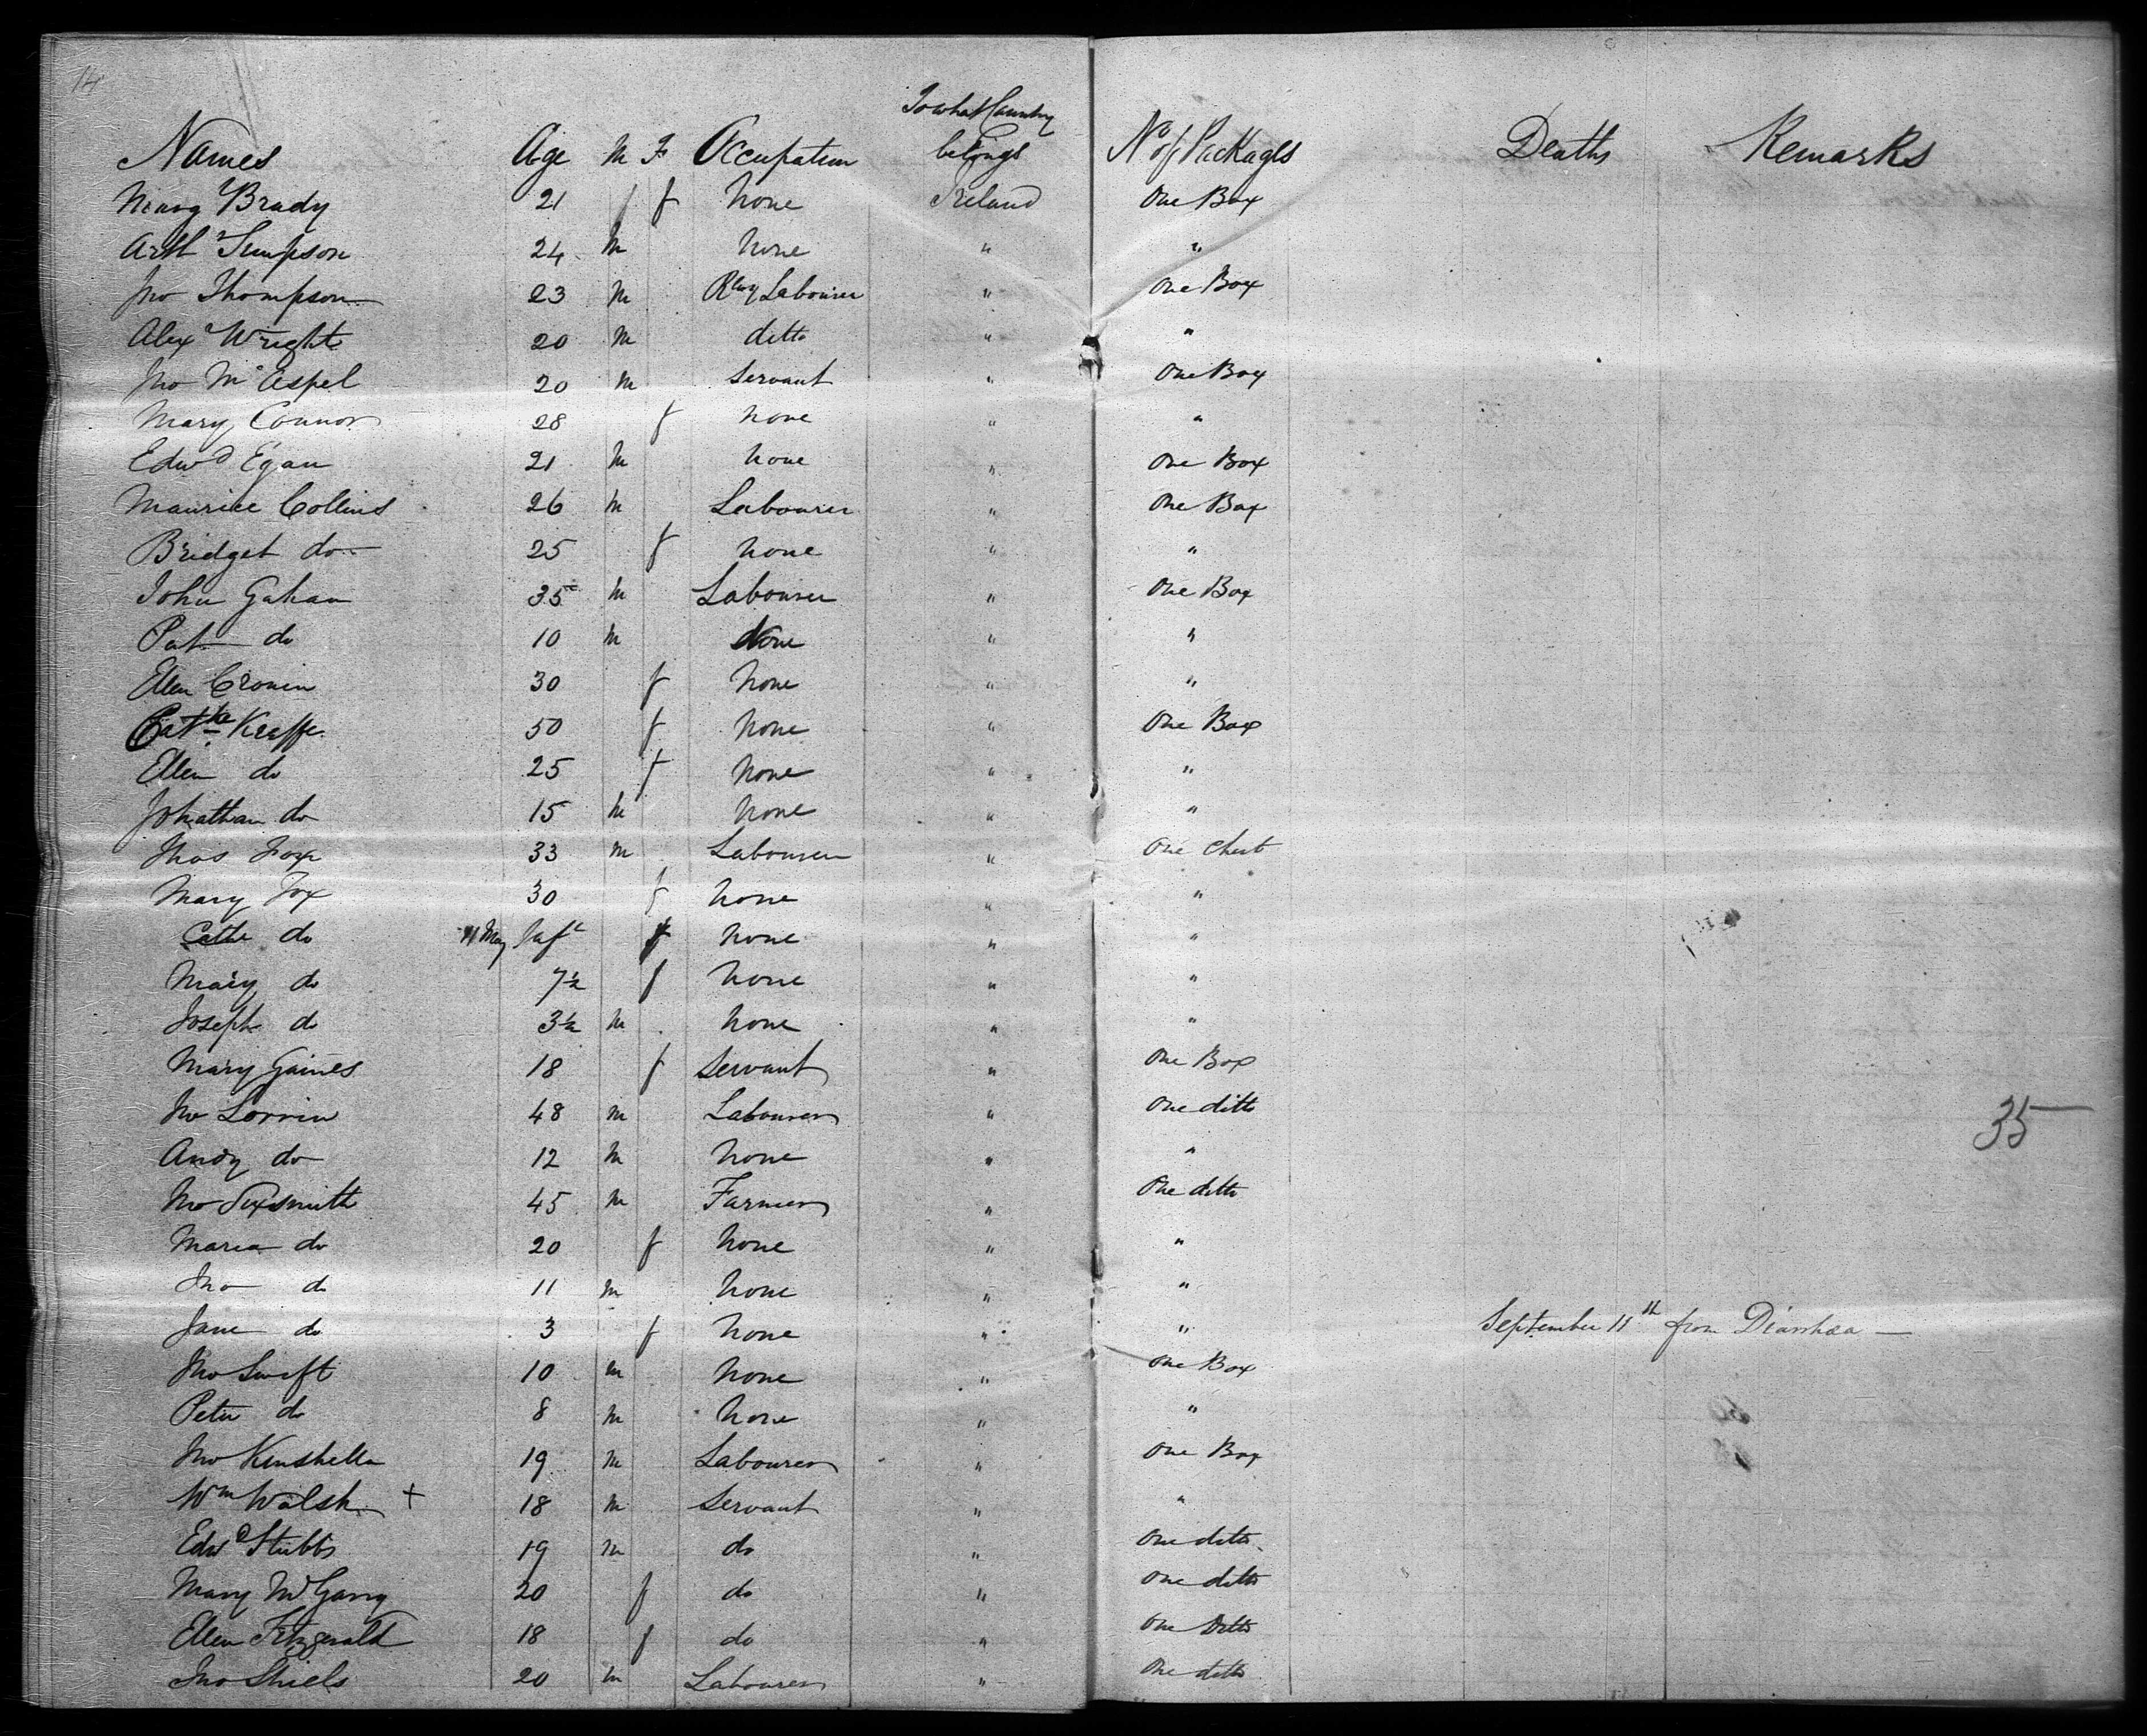 14
To what Country
Names Age M F Occupation belongs No of Packages Deaths Remarks
Mary Brady 21 f None Ireland One Box
Arth Simpson 24 M None " "
Jno Thompson 23 M Rlwy Labourer " One Box
Alex Wright 20 M ditto " "
Jno McAspel 20 M Servant " One Box
Mary Connor 28 f None " "
Edwd Egan 21 M None " One Box
Maurice Collins 26 M Labourer " One Box
Bridget do 25 f None " "
John Gahan 35 M Labourer " One Box
Pat do 10 M None " "
Ellen Cronin 30 f None " "
Cathe Keaffe 50 f None " One Box
Ellen do 25 f None " "
Johathan do 15 M None " "
Thos Fox 33 M Labourer " One Chest
Mary Fox 30 f None " "
Cathe do 11 May Inft f None " "
Mary do 7½ f None " "
Joseph do 3½ M None " "
Mary Gaines 18 f Servant " One Box
Jno Lorrin 48 M Labourer " One ditto 35
Andy do 12 M None " "
Jno Sixsmith 45 M Farmer " One ditto
Maria do 20 f None " "
Jno do 11 M None " "
Jane do 3 f None " " September 11th from Diarrhœa —
Jno Swift 10 M None " One Box
Peter do 8 M None " "
Jno Kinshella 19 M Labourer " One Box
Wm Walsh + 18 M Servant " "
Edwd Stubbs 19 M do " One ditto
Mary McGarry 20 f do " One ditto
Ellen Fitzgerald 18 f do " One Ditto
Jno Shiels 20 M Labourer " One ditto